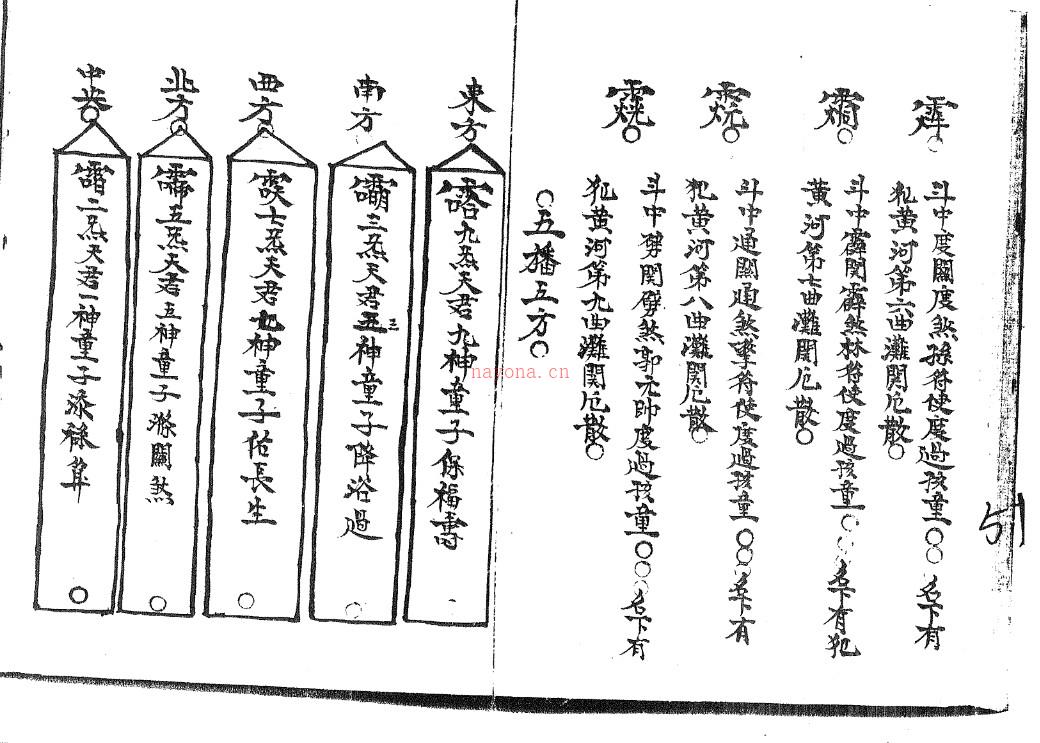 斗中度關度煞孫符使度過孩童○○名下有
犯黃河第六曲灘関厄散○
斗中霹関霹煞林符使度過孩童○○名下有犯
黃河第七曲灘関厄散○
斗中通關通煞畢符使度過孩童○○名下有
犯黃河第八曲灘関厄散○
斗中劈関劈煞郭元帥度過孩童○○○名下有
犯黃河第九曲灘関厄散○
○五旛五方○
東方
九炁天君九神童子保福壽
南方
三炁天君三神童子降浴過
西方
七炁天君七神童子佑長生
北方
五炁天君五神童子滌關煞
中央
二炁天君一神童子添祿算
51
nayona.cn